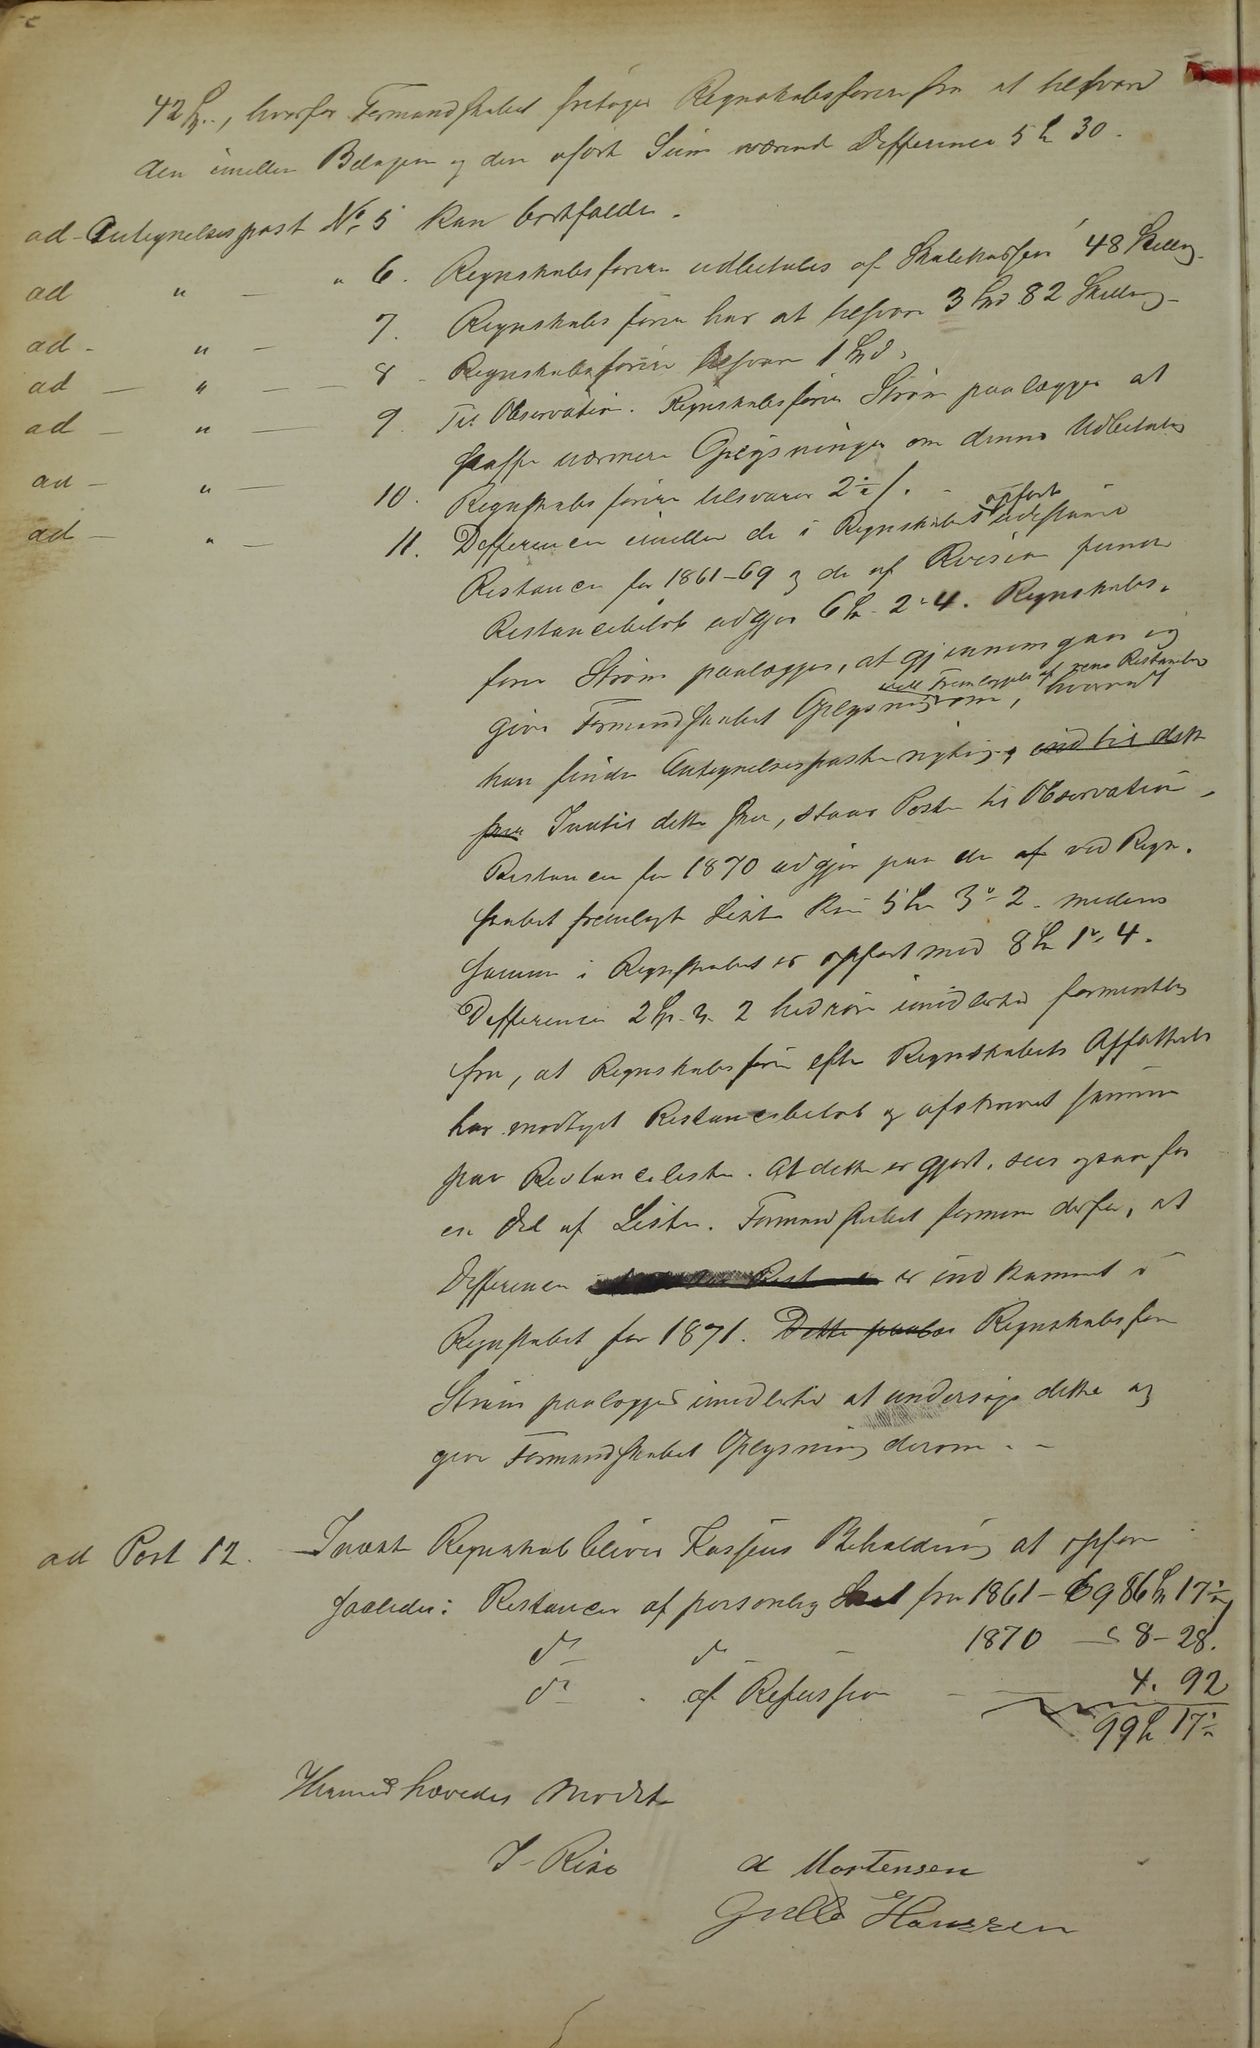 42 Sp., hvorfor Formandskabet fritager Regnskabsføreren fra at tilsvare
den imellem Belagene og den opført Sum værende Differense 5 Sp 30.
ad Antegnelsespost No 5 kan bortfalde.
ad " — " 6. Regnskabsføreren udbetales af Skolekassen 48 Skilling.
ad - " — 7. Regnskabsføreren har at tilsvare 3 Spd 82 Skilling
ad — " — — 8 - Regnskabsføreren tilsvare 1 Spd.
ad — " — 9. Til Observation. Regnskabsfører Strøm paalægges at
skaffe nærmere Oplysninger om denne Udbetaling
ad — " — 10. Regnskabsføreren tilsvarer 2
ad — " — 11. Differencen imellem de i Regnskabet opførte udestaaende
Restancer for 1861-69 og de af Revisor fundne
Restancebeløb udgjør 6 Sp. 2 " 4. Regnskabs-
fører Strøm paalægges, at gjennemgaa og
give Formandskabet Oplysning om, ved Fremlæggelse af rene Restancelister hvorvidt
han finder Antegnelsesposten rigtig, ind til dette
sker Indtil dette sker, staar Posten til Observation.
Restancen for 1870 udgjør paa de af ved Regn-
skabet fremlagte Lister kun 5 Sp 3 " 2. medens
samme i Regnskabet er opført med 8 Sp 1 " 4.
Differencen 2 Sp. 3. 2 hidrører imidlertid formentlig
fra, at Regnskabsføreren efter Regnskabets Affattelse
har modtaget Restancebeløb og afskrevet samme
paa Restancelisten. At dette er gjort, sees ogsaa for
en Del af Listen. Formandskabet formener derfor, at
Differencen er indkommet i
Regnskabet for 1871. Dette paalæ Regnskabsfører
Strøm paalægges imidlertid at undersøge dette og
give Formandskabet Oplysning derom. -
ad Post 12. I næste Regnskab bliver Kassens Beholdning at opføre
saaledes: Restancer af personlig Skat fra 1861-69 86 Sp 17
do do - 1870 — " 8 - 28.
do . af Refusion — 4. 92
99 Sp 17
Hermed hævedes Mødet
J. Riso A Mortensen
Hanssen